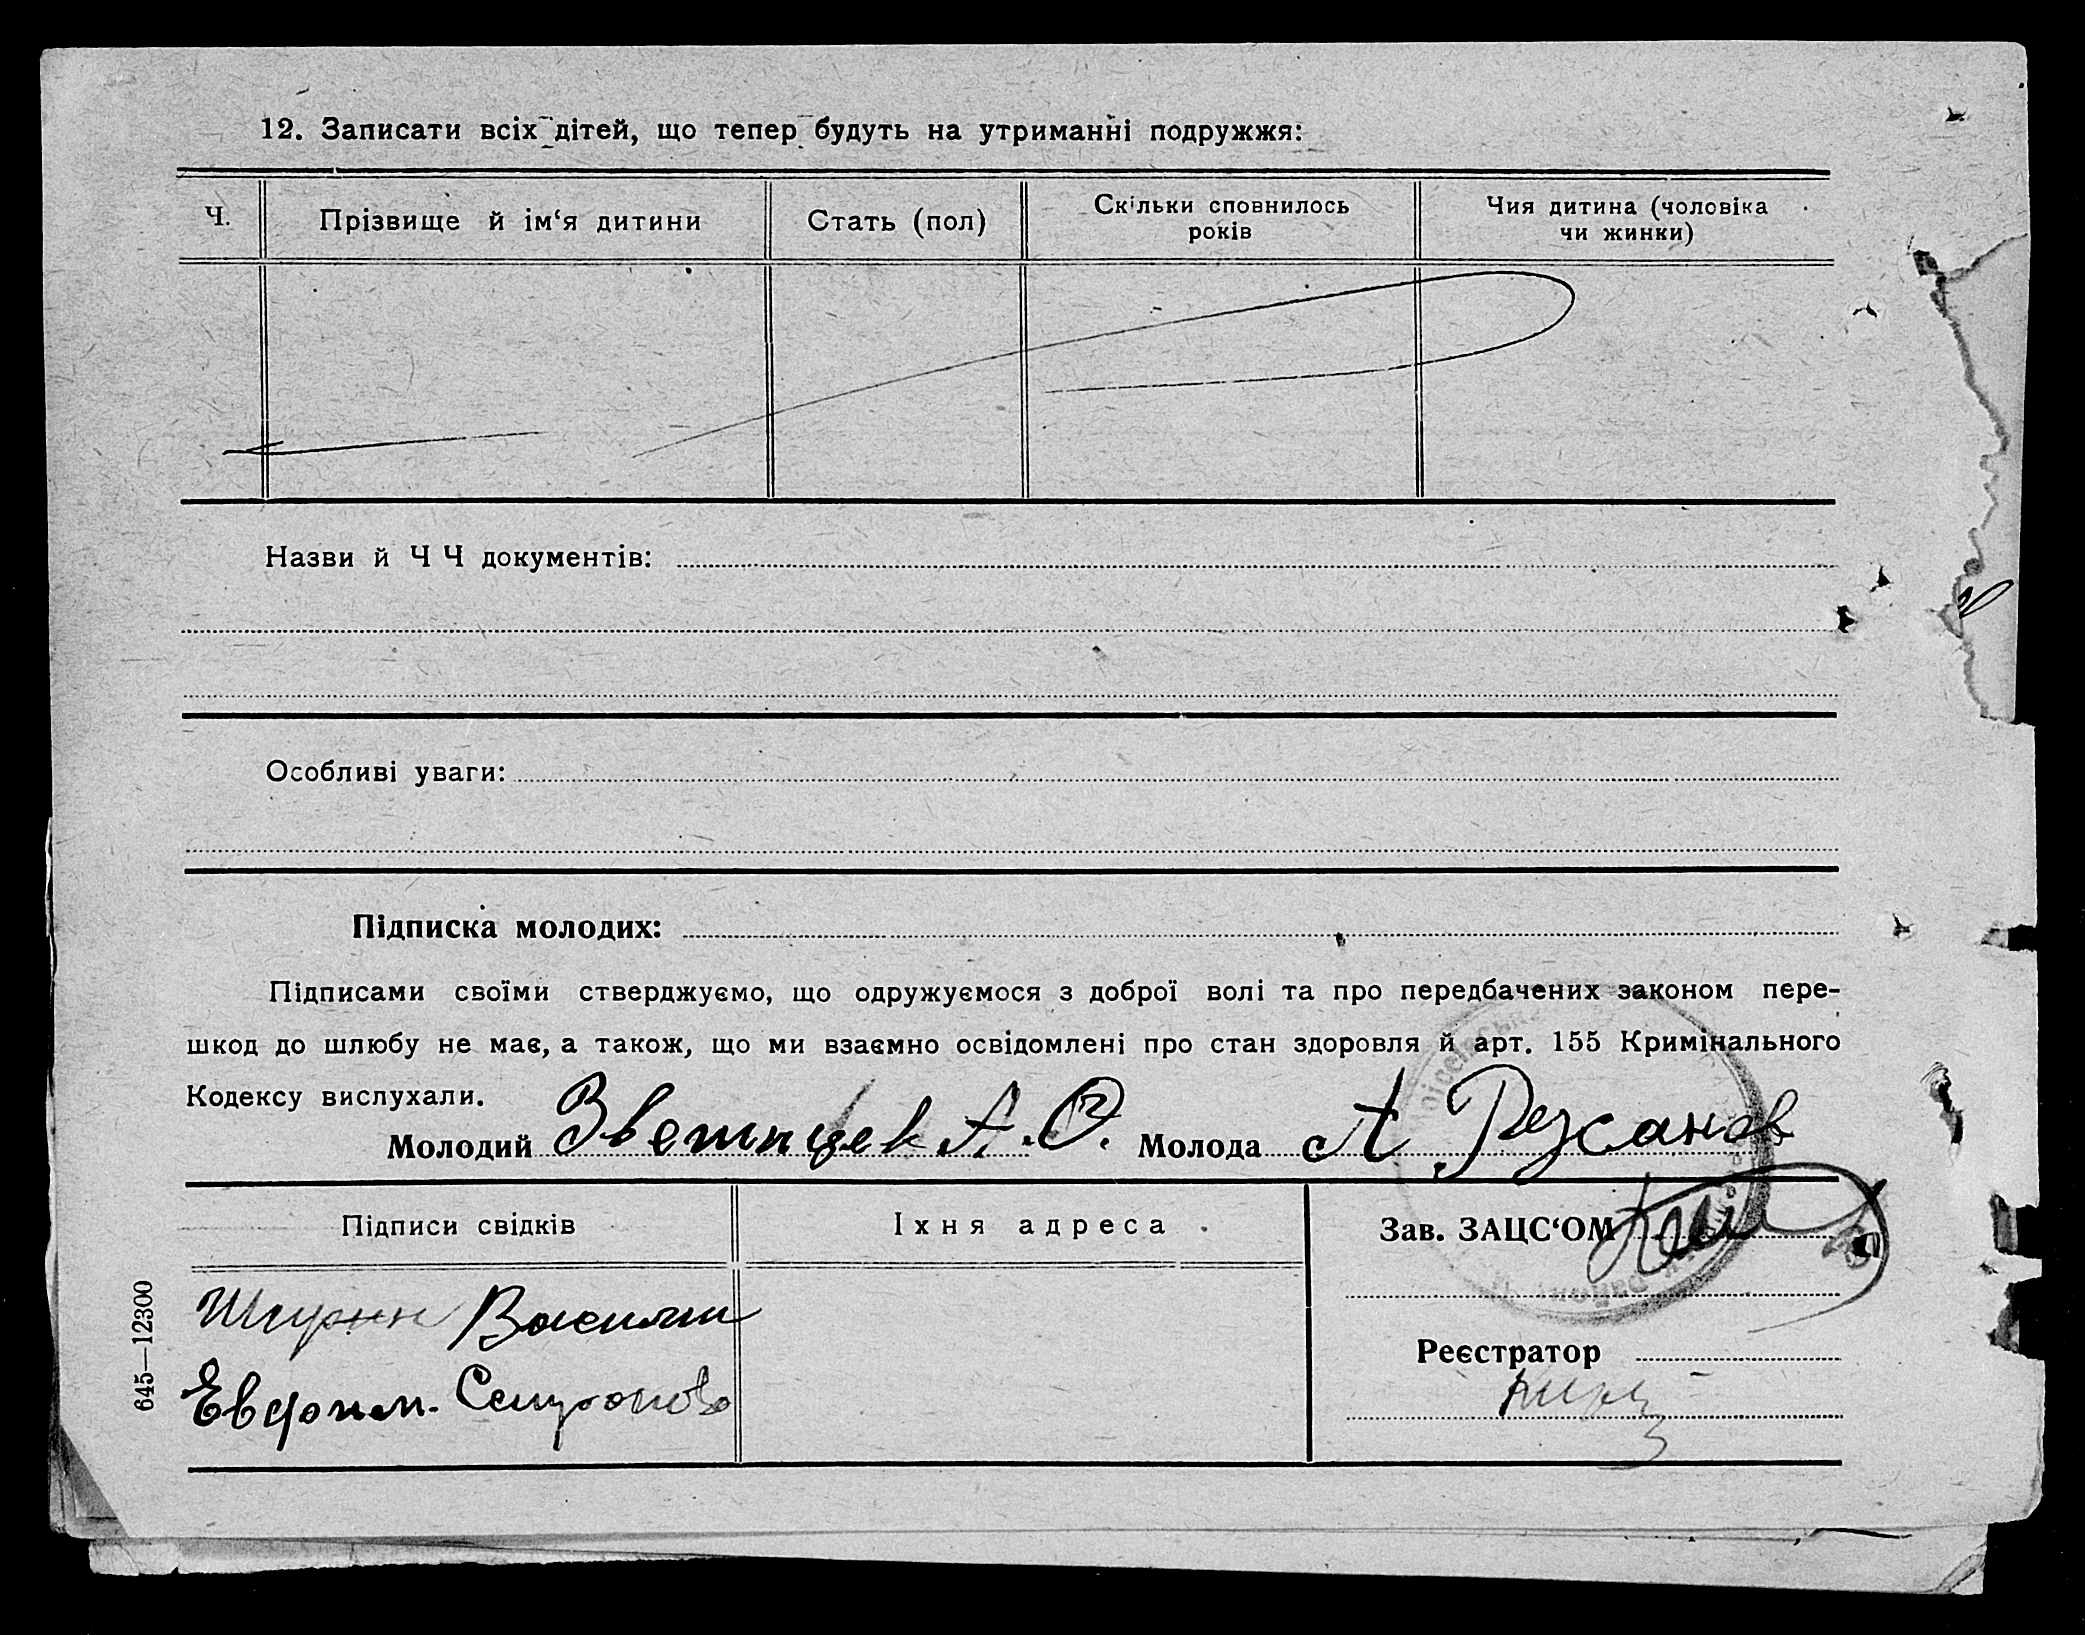 12. Записати всіх дітей, що тепер будуть на утриманні подружжя:
Ч.
Прізвище й ім‘я дитини
Стать (пол)
Скільки сповнилось
років
Чия дитина (чоловіка
чи жинки)
Назви й Ч Ч документів:
Особливі уваги:
Підписка молодих:
Підписами своїми стверджуємо, що одружуємося з доброї волі та про передбачених законом пере-
шкод до шлюбу не має, а також, що ми взаємно освідомлені про стан здоровля й арт. 155 Кримінального
Кодексу вислухали.
Молодий А. О. Молода А Русанов
Підписи свідків
Їхня адреса
Зав. ЗАЦС‘ОМ
Василий
Реєстратор
645—12300